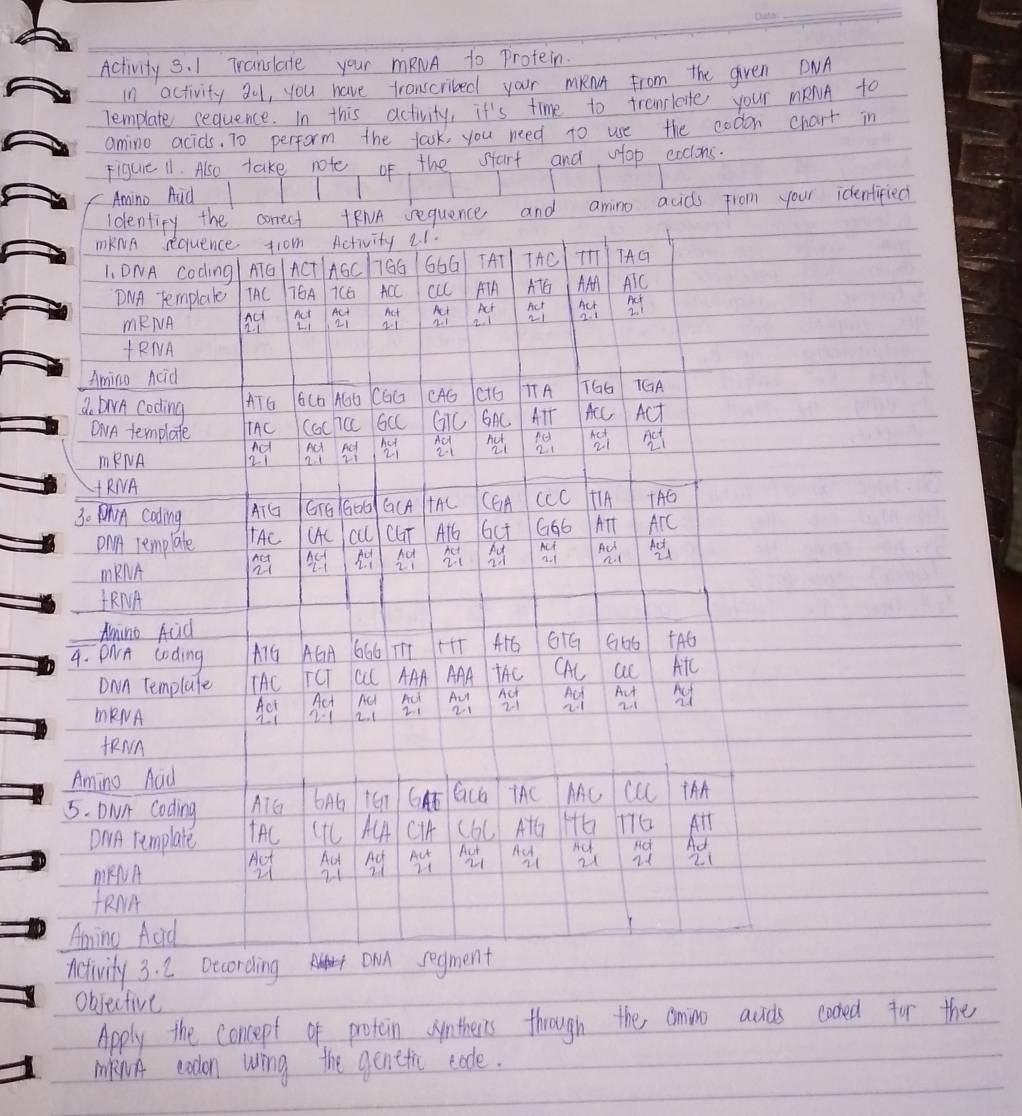 Date:
Activity 3.1 Translate your mRNA to Protein.
in activity 2.1, you have transcribed your mRNA from the given DNA
Template sequence. In this activity, it's time to translate your mRNA to
amino acids. To perform the task, you need to use the codon chart in
Figure 11. Also take note of the start and stop codons.
Amino Acid
Identify the correct tRNA sequence and amino acids from your identified
mRNA sequence from Activity 2.1.
1. DNA coding ATG ACT AGC TGG GGG TAT TAC TTT TAG
DNA Template TAC TGA TCG ACC CCC ATA ATG AAA ATC
mRNA Act 2.1 Act 2.1 Act 2.1 Act 2.1 Act 2.1 Act 2.1 Act 2.1 Act 2.1 Act 2.1
tRNA
Amino Acid
2. DNA coding ATG GCG AGG CGG CAG CTG TTA TGG TGA
DNA template TAC CGC TCC GCC GTC GAC ATT ACC ACT
mRNA Act 2.1 Act 2.1 Act 2.1 Act 2.1 Act 2.1 Act 2.1 Act 2.1 Act 2.1 Act 2.1
tRNA
3. DNA coding ATG GTG GGG GCA TAC CGA CCC TTA TAG
DNA Template TAC CAC CCC CGT ATG GCT GGG ATT ATC
mRNA Act 2.1 Act 2.1 Act 2.1 Act 2.1 Act 2.1 Act 2.1 Act 2.1 Act 2.1 Act 2.1
tRNA
Amino Acid
4. DNA coding ATG AGA GGG TTT TTT ATG GTG GGG TAG
DNA Template TAC TCT CCC AAA AAA TAC CAC CCC ATC
mRNA Act 2.1 Act 2.1 Act 2.1 Act 2.1 Act 2.1 Act 2.1 Act 2.1 Act 2.1 Act 2.1
tRNA
Amino Acid
5. DNA coding ATG GAG TGT GAT GCG TAC AAC CCC TAA
DNA Template TAC CTC ACA CTA CGC ATG TTG TTG ATT
mRNA Act 2.1 Act 2.1 Act 2.1 Act 2.1 Act 2.1 Act 2.1 Act 2.1 Act 2.1 Act 2.1
tRNA
Amino Acid
Activity 3.2 Decording DNA segment
Objective
Apply the concept of protein synthesis through the amino acids coded for the
mRNA codon using the genetic code.